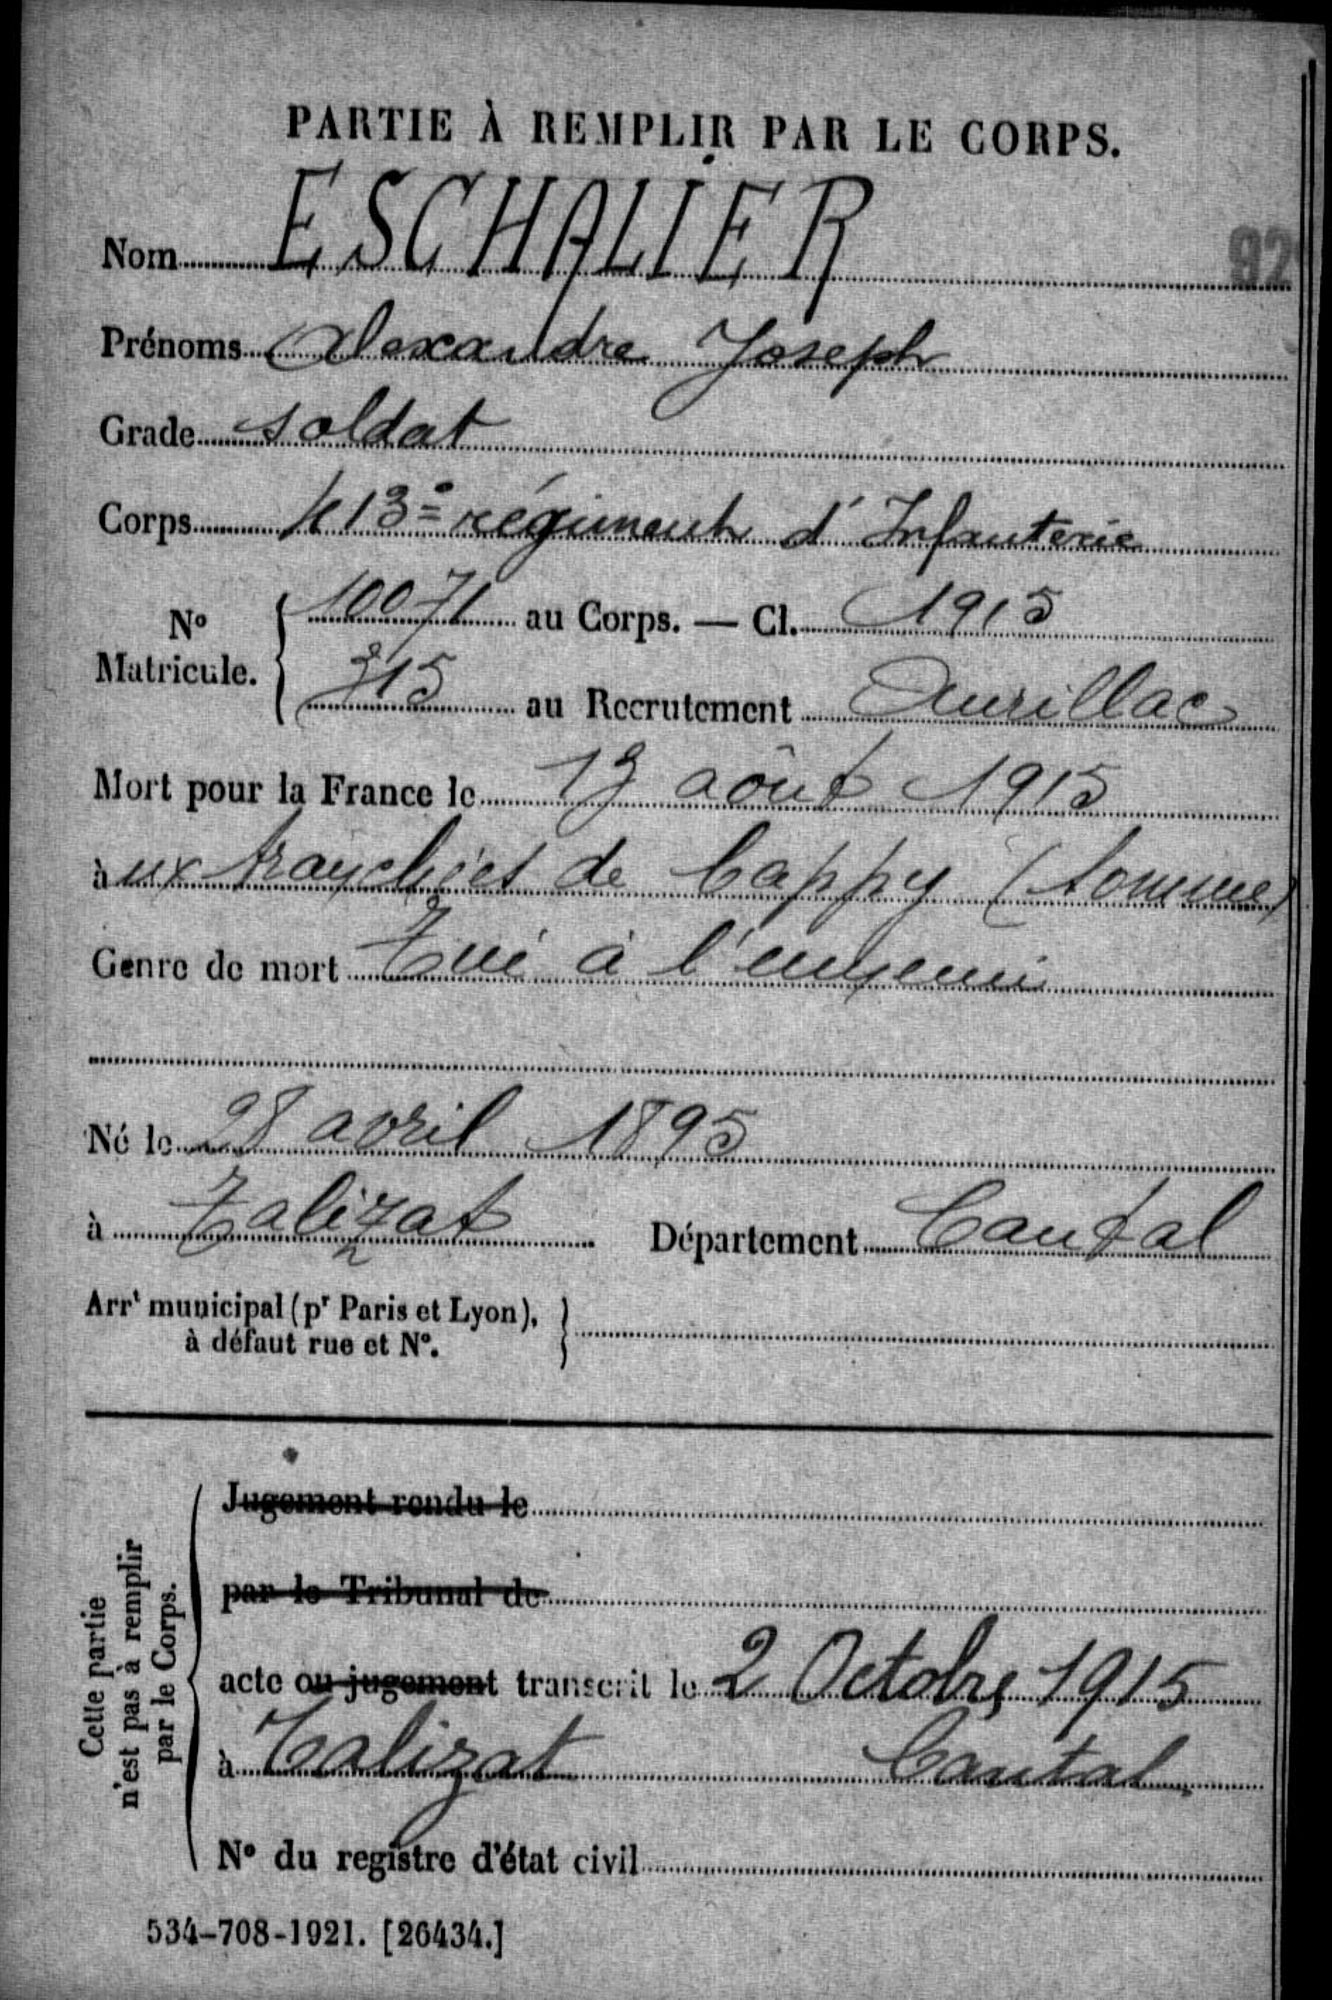 PARTIE À REMPLIR PAR LE CORPS.
Nom ESCHALIER
92
Prénoms Alexandre Joseph
Grade soldat
Corps 413e régiment d'Infanterie
No Matricule. { 10071 au Corps. — Cl. 1915
315 au Recrutement Aurillac
Mort pour la France le 13 août 1915
aux tranchées de Cappy (Somme)
Genre de mort Tué à l'ennemi
Né le 28 avril 1895
à Talizat Département Cantal
Arrt municipal (pr Paris et Lyon), }
à défaut rue et No.
Cette partie
n'est pas à remplir
par le Corps.
Jugement rendu le
par le Tribunal de
acte ou jugement transcrit le 2 Octobre 1915
à Talizat Cantal
No du registre d'état civil
534-708-1921. [26434.]